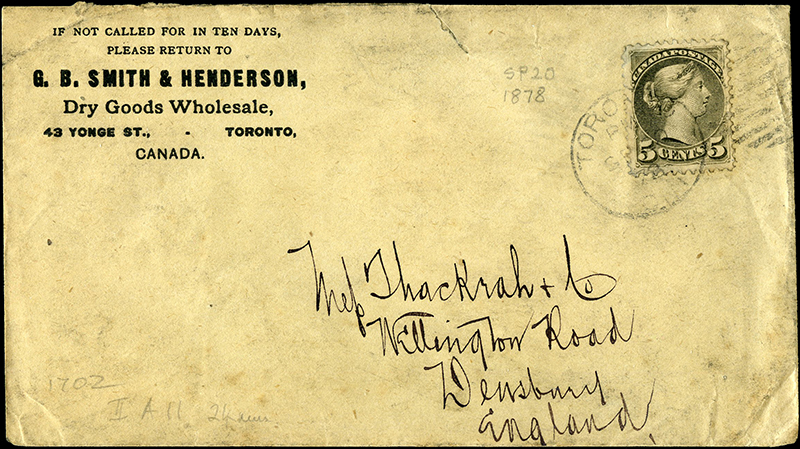 IF NOT CALLED FOR IN TEN DAYS,
PLEASE RETURN TO
G. B. SMITH & HENDERSON,
Dry Goods Wholesale,
43 YONGE ST., - TORONTO,
CANADA.
SP20
1878
CANADA POSTAGE
5 CENTS 5
TORO
Thackrah & Co
Road
England
1702
II A 11